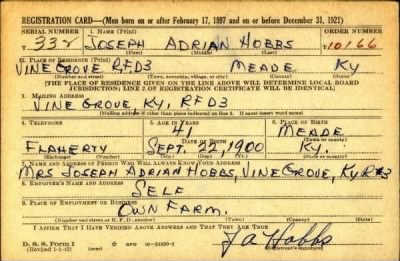 REGISTRATION CARD—(Men born on or after February 17, 1897 and on or before December 31, 1921)
SERIAL NUMBER 1. NAME (Print) ORDER NUMBER
T 332 JOSEPH ADRIAN HOBBS 10166
2. PLACE OF RESIDENCE (Print)
VINE GROVE R.F.D3 MEADE KY
(Number and street) (Town, township, village, or city) (County) (State)
[THE PLACE OF RESIDENCE GIVEN ON THE LINE ABOVE WILL DETERMINE LOCAL BOARD
JURISDICTION; LINE 2 OF REGISTRATION CERTIFICATE WILL BE IDENTICAL]
3. MAILING ADDRESS
VINE GROVE, KY, R.F.D3
[Mailing address if other than place indicated on line 2. If same insert word same]
4. TELEPHONE 5. AGE IN YEARS 6. PLACE OF BIRTH
41 MEADE
DATE OF BIRTH (Town or county)
FLAHERTY SEPT. 22, 1900 KY.
(Exchange) (Number) (Mo.) (Day) (Yr.) (State or country)
7. NAME AND ADDRESS OF PERSON WHO WILL ALWAYS KNOW YOUR ADDRESS
MRS JOSEPH ADRIAN HOBBS, VINE GROVE, KY R#3
8. EMPLOYER'S NAME AND ADDRESS
SELF
9. PLACE OF EMPLOYMENT OR BUSINESS
OWN FARM.
(Number and street or R. F. D. number) (Town) (County) (State)
I AFFIRM THAT I HAVE VERIFIED ABOVE ANSWERS AND THAT THEY ARE TRUE.
D. S. S. Form 1
(Revised 1-1-42) (over) J A Hobbs